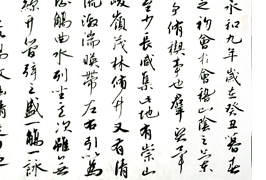 永和九年歲在癸丑暮春
之初會於會稽山陰之蘭
亭脩禊事也羣賢畢
至少長咸集此地有崇山
峻領茂林脩竹又有清
流激湍暎帶左右引以為
流觴曲水列坐其次雖無
絲竹管弦之盛一觴一詠